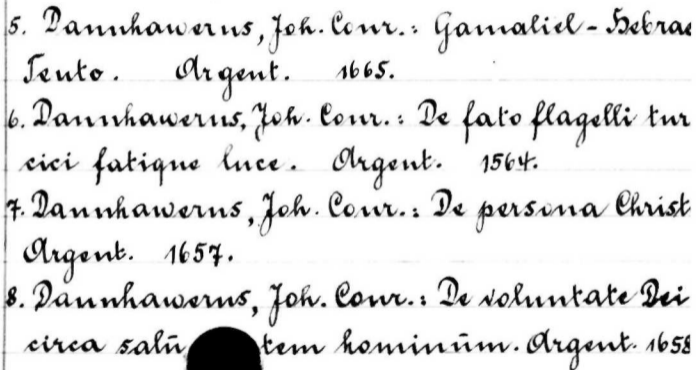 5. Dannhawerus, Joh. Conr.: Gamaliel-Hebrae
Teuto. Argent. 1665.
6. Dannhawerus, Joh. Conr.: De fato flagelli tur
cici fatique luce. Argent. 1564.
7. Dannhawerus, Joh. Conr.: De persona Christ
Argent. 1657.
8. Dannhawerus, Joh. Conr.: De voluntate Dei
circa salū tem hominūm. Argent. 1658